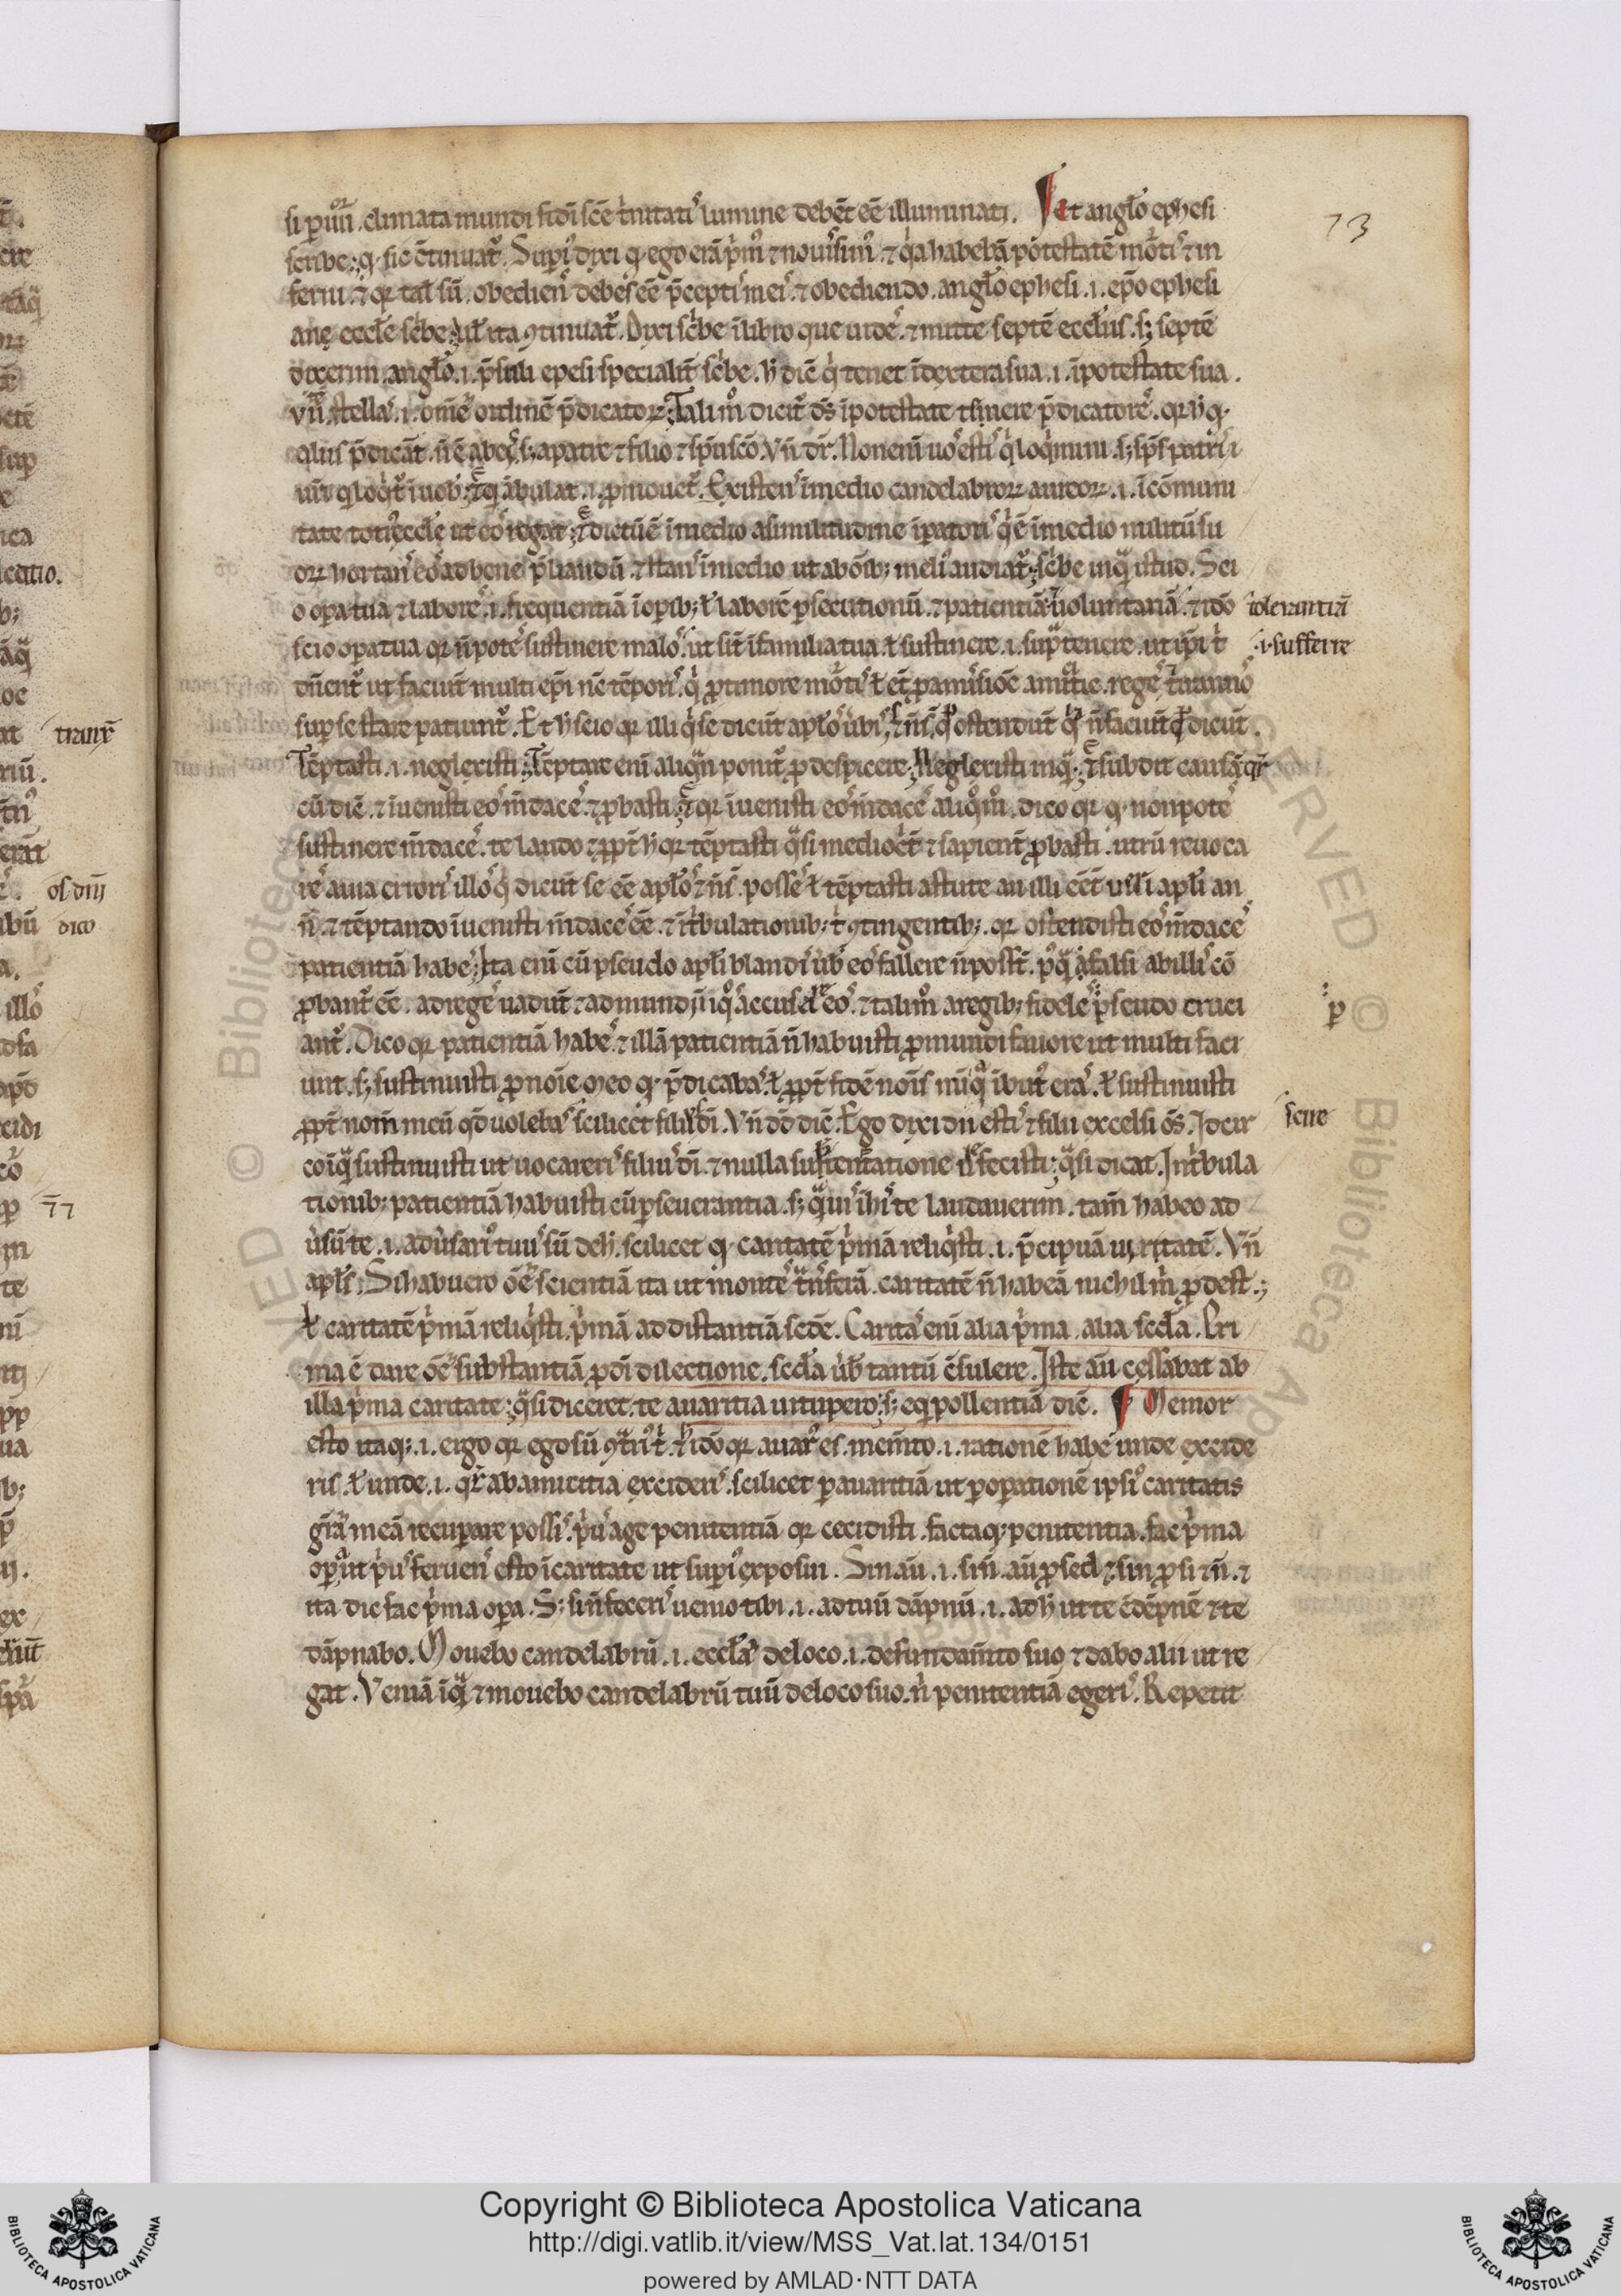 si p iiiior climata mundi fidī scē t̓nitati᷒ lumine debēt eē illuminati. Et anglo ephesi 73
scribe. q sic c̄tinuat᷒. Supi᷒ dixi q ego erā p̓m᷒ ⁊ nouissim᷒. ⁊ q̓a habebā potestatē mo̓ti᷒ ⁊ in
ferni. ⁊ qr tal sū. obedien᷒ debes eē p̄cepti᷒ mei᷒. ⁊ obediendo. anglo ephesi .i. ep̄o ephesi
ane eccl̄e sc̓be. Ul̄ ita ꝯtinuat᷒. Dixi sc̓be ī libro que uide᷒. ⁊ mitte septē eccl̄iis. sꝫ septē
dixerim. anglo .i. p̄suli epesi specialit̄ sc̓be. h̄ dic̄ q̓ tenet ī dextera sua .i. ī potestate sua.
vii stella᷒ .i. om̄e᷒ ordinē p̄dicatoꝝ. Tali m᷒ dicit᷒ dn̄s ī potestate tenere p̄dicatore᷒. qr h̄ q
ali᷒ p̄dicāt. n̄ ē ab e᷒. sꝫ a patre ⁊ filio ⁊ sp̄u sc̄o. Vn̄ dr̄. Non enī uo᷒ esti᷒ q̓ loq̓mini. sꝫ sp̄s patri᷒
ur̄i q̓ loq̓t᷒ ī uob᷒. Et q̓ ābulat .i. p̄mouet᷒. Existen᷒ ī medio candelabroꝝ aureoꝝ .i. ī cōmuni
tate toti᷒ eccl̄e ut eo᷒ regat. Et dictū ē ī medio a similitudine ipatori᷒ q̓ ē ī medio militū su
oꝝ hortan᷒ eo᷒ ad bene p̄liandū. ⁊ stan᷒ ī medio ut ab oīb; meli᷒ audiat᷒. sc̓be inq̓ istud. Sci
o opa tua ⁊ labore᷒ .i. frequentiā ī opib; ł laborē psecutionū. ⁊ patientiā. uoluntariā. ⁊ idō tolerantiā
scio opa tua qr n̄ pote᷒ sustinere malo᷒. ut sīt ī familia tua. ł sustinere .i. sup tenere ut ip̄i t̓ .i. sufferre
dn̄ent᷒ ut faciūt multi ep̄i nr̄i tēpori᷒. q̓ p timore mo̓ti᷒ ł et̄ p amissiōe amicitie. rege᷒ t̓anno᷒
sup se stare patiunt᷒. Et h̄ scio qr illi q̓ se dicūt apl̄o᷒ ubi᷒ ⁊ n̄ sūt. q ostendūt q̓ n̄ faciūt qd dicūt.
Tēptasti .i. neglexisti. Tēptare enī aliq̄n ponit᷒ p despicere. Neglexisti inq̓. Et subdit causā qr̄
cū dic̄. ⁊ iuenisti eo᷒ m̄dace᷒. ⁊ pbasti. Et qr iuenisti eo᷒ m̄dace᷒ aliq̓ m᷒. dico qr q non pote᷒
sustinere m̄dace᷒. te laudo ⁊ ppt̄ h̄ qr tēptasti q̓si medioc̓t̄ ⁊ sapient̄ pbasti. utrū reuoca
re᷒ a uia errori᷒ illo᷒ q̓ dicūt se eē apl̄o᷒ ⁊ n̄ s̄. posse᷒ ł tēptasti astute an illi eēt ueri apl̄i an
n̄. ⁊ tēptando iuenisti m̄dace᷒ eē. ⁊ ī t̓bulationib; t̓ ꝯtingentib; qr ostendisti eo᷒ m̄dace᷒
patientiā habe᷒. Ita enī cū pseudo apl̄i blandi᷒ ūb᷒ eo᷒ fallere n̄ possūt. p᷒q̓ falsi ab illi᷒ cō
pbant᷒ eē. ad rege᷒ uadūt ⁊ ad mundi iniquo᷒ accusāt eo᷒. ⁊ tali m᷒ a regib; fidele᷒ p pseudo cruci p
ant᷒. Dico qr patientiā habe᷒. ⁊ illā patientiā n̄ habuisti p mundi fauore ut multi faci
unt. sꝫ sustinuisti p noīe meo q p̄dicaba᷒. ł ppt̄ fidē nois mei q̓ ībut᷒ era᷒. ł sustinuisti
ppt̄ nom̄ meū qd uoleba᷒ scilicet fili᷒ dī. Vn̄ dd̄ dic̄. Ego dixi dii esti᷒ ⁊ filii excelsi om̄s. Idcir scire
co inq̓ sustinuisti ut uocareri᷒ filiu᷒ dī. ⁊ nulla sustentatione defecisti. q̓si dicat. In t̓bula
tionib; patientiā habuisti cū pseuerantia. sꝫ q̓mui᷒ ī hi᷒ te laudauerim. tam̄ habeo ad
u̓sū te .i. adu̓sari᷒ tuu᷒ sū de h̄. scilicet q caritatē p̓mā reliq̓sti .i. p̄cipuā uirtutē. Vn̄
apl̄s. Si habuero ōe᷒ scientiā ita ut monte᷒ t̓nsferā. caritatē n̄ habeā nichil m̓ pdest.;
ł caritatē p̓mā reliq̓sti. p̓mā ad distantiā sedē. Carita᷒ enī alia p̓ma. alia secd̄a. Pri
ma ē dare ōe᷒ substantiā p dī dilectione. secd̄a ūb᷒ tantū c̄sulere. Iste aū cessabat ab
illa p̓ma caritate. q̓si diceret. te auaritia uitupero. sꝫ eq̓pollentiā dic̄. Memor
esto itaq; .i. ergo qr ego sū ꝯt̓ri᷒ t̓. ł idō qr auar᷒ es. mem̄to .i. rationē habe unde excide
ris. ł unde .i. qr̄ ab amicitia excideri᷒. scilicet p auaritiā ut p opationē ipsi᷒ caritatis
gr̄am meā recupare possi᷒. p̓u᷒ age penitentiā qr cecidisti. factaq; penitentia. fac p̓ma
opa. ut p̓u᷒ feruen᷒ esto ī caritate ut supi᷒ exposui. Sin aū .i. sin̄ aū p sed ⁊ sin p si ⁊ n̄. ⁊
ita dic fac p̓ma opa. Sꝫ si n̄ feceri᷒ uenio tibi .i. ad tuū dāpnū .i. ad h̄ ut te c̄dēpnē ⁊ te
dāpnabo. Mouebo candelabrū .i. eccl̄iā de loco .i. de fundam̄to suo ⁊ dabo alii ut re
gat. Veniā īq̓ ⁊ mouebo candelabrū tuū de loco suo. n̄ penitentiā egeri᷒. Repetit
tranx̄
dico
Copyright © Biblioteca Apostolica Vaticana
http://digi.vatlib.it/view/MSS_Vat.lat.134/0151
powered by AMLAD·NTT DATA
BIBLIOTECA APOSTOLICA VATICANA
BIBLIOTECA APOSTOLICA VATICANA